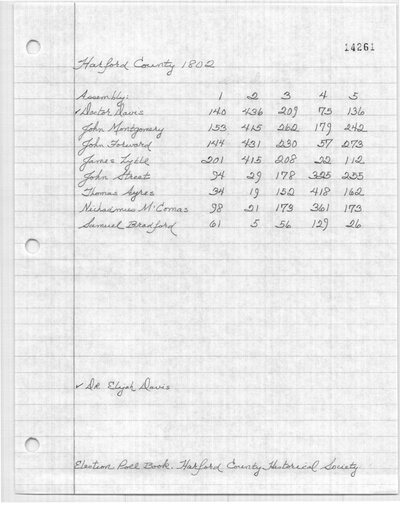 14261
Harford County 1802
Assembly: 1 2 3 4 5
✓Doctor Davis 140 436 209 75 136
John Montgomery 153 415 262 179 242
John Forward 144 431 230 57 273
James Lytle 201 415 208 22 112
John Street 94 29 178 325 235
Thomas Ayres 34 19 152 418 162
Nichodmus McComas 98 21 173 361 173
Samuel Bradford 61 5 56 129 26
✓ Dr Elijah Davis
Election Poll Book. Harford County Historical Society